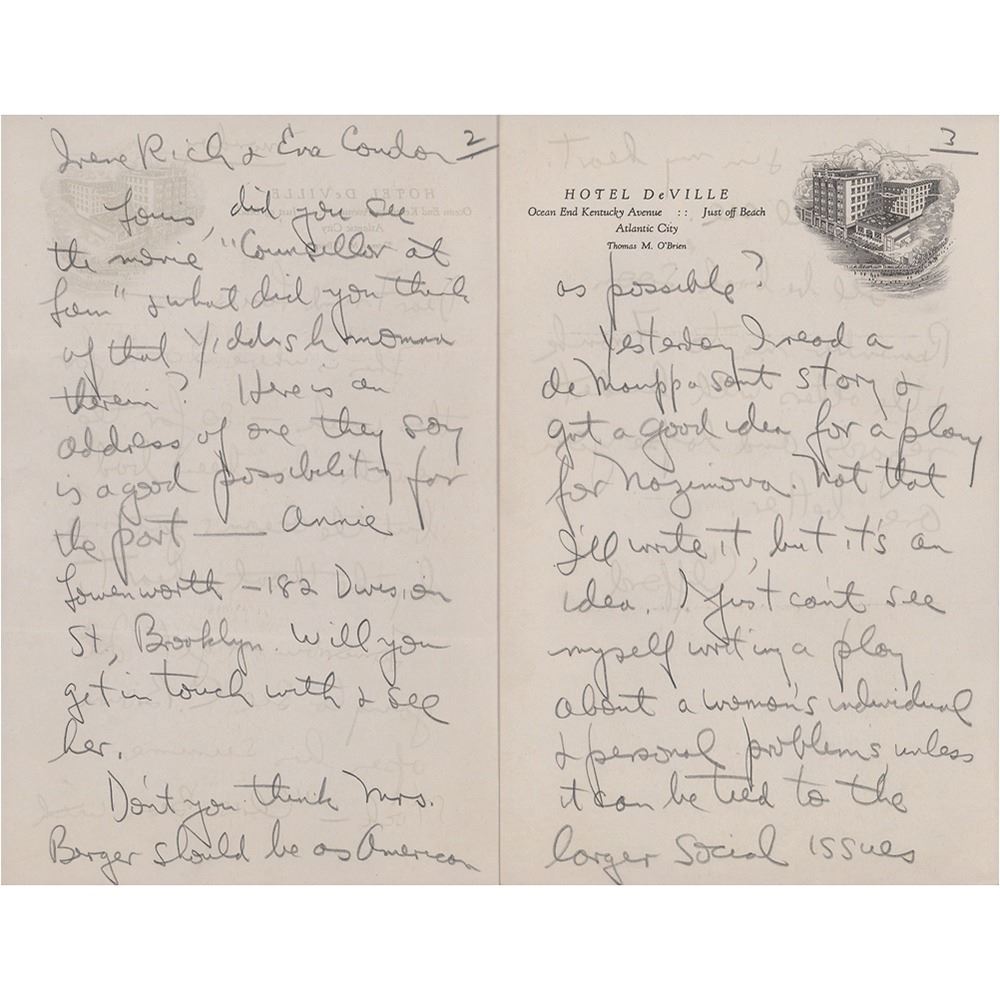 2
Irene Rich & Eva Condon
Louis, did you see
the movie "Counsellor at
Law" & what did you think
of that Yiddish momma
therein? Here is an
address of one they say
is a good possibility for
the part — Annie
Lowenworth - 182 Division
St, Brooklyn. Will you
get in touch with & see
her.
Don't you think Mrs.
Berger should be as American
3
HOTEL DeVILLE
Ocean End Kentucky Avenue :: Just off Beach
Atlantic City
Thomas M. O'Brien
as possible?
Yesterday I read a
de Mauppasant story &
got a good idea for a play
for Nazimova. Not that
I'll write it, but it's an
idea. I just can't see
myself writing a play
about a woman's individual
& personal problems, unless
it can be tied to the
larger social issues